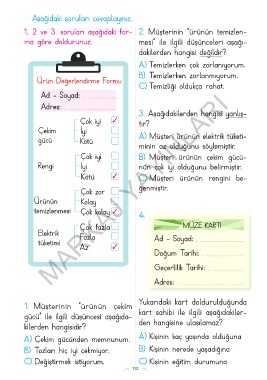 Aşağıdaki soruları cevaplayınız.
1, 2 ve 3. soruları aşağıdaki for-
ma göre doldurunuz.
Ürün Değerlendirme Formu
Ad - Soyad: ..................
Adres: ..................
Çekim gücü
Çok iyi ✓
İyi
Kötü
Rengi
Çok iyi
İyi
Kötü ✓
Ürünün temizlenmesi
Çok zor
Kolay
Çok kolay ✓
Elektrik tüketimi
Çok fazla
Fazla
Az ✓
1. Müşterinin "ürünün çekim
gücü" ile ilgili düşüncesi aşağıda-
kilerden hangisidir?
A) Çekim gücünden memnunum.
B) Tozları hiç iyi çekmiyor.
C) Değiştirmek istiyorum.
2. Müşterinin "ürünün temizlen-
mesi" ile ilgili düşünceleri aşağı-
dakilerden hangisi değildir?
A) Temizlerken çok zorlanıyorum.
B) Temizlerken zorlanmıyorum.
C) Temizliği oldukça rahat.
3. Aşağıdakilerden hangisi yanlış-
tır?
A) Müşteri ürünün elektrik tüketi-
minin az olduğunu söylemiştir.
B) Müşteri ürünün çekim gücü-
nün çok iyi olduğunu belirmiştir.
C) Müşteri ürünün rengini be-
ğenmiştir.
4.
MÜZE KARTI
Ad - Soyad: ..................
Doğum Tarihi: ..................
Geçerlilik Tarihi: ..................
Adres: ..................
Yukarıdaki kart doldurulduğunda
kart sahibi ile ilgili aşağıdakiler-
den hangisine ulaşılamaz?
A) Kişinin kaç yaşında olduğuna
B) Kişinin nerede yaşadığına
C) Kişinin eğitim durumuna